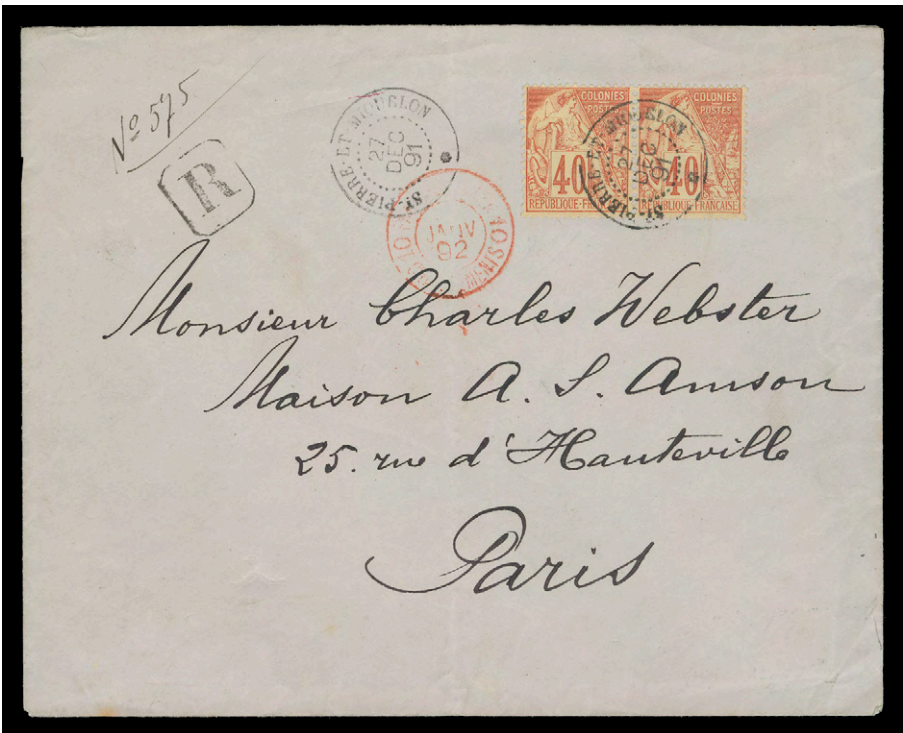 No 575
R
ST-PIERRE-ET MIQUELON
27
DEC
91
COLONIES
POSTES
40
REPUBLIQUE-FR
COLONIES
POSTES
40
REPUBLIQUE FRANCAISE
ST-PIERRE-ET MIQUELON
27
DEC
91
JANV
92
Monsieur Charles Webster
Maison A. S. Amson
25. rue d'Hauteville
Paris